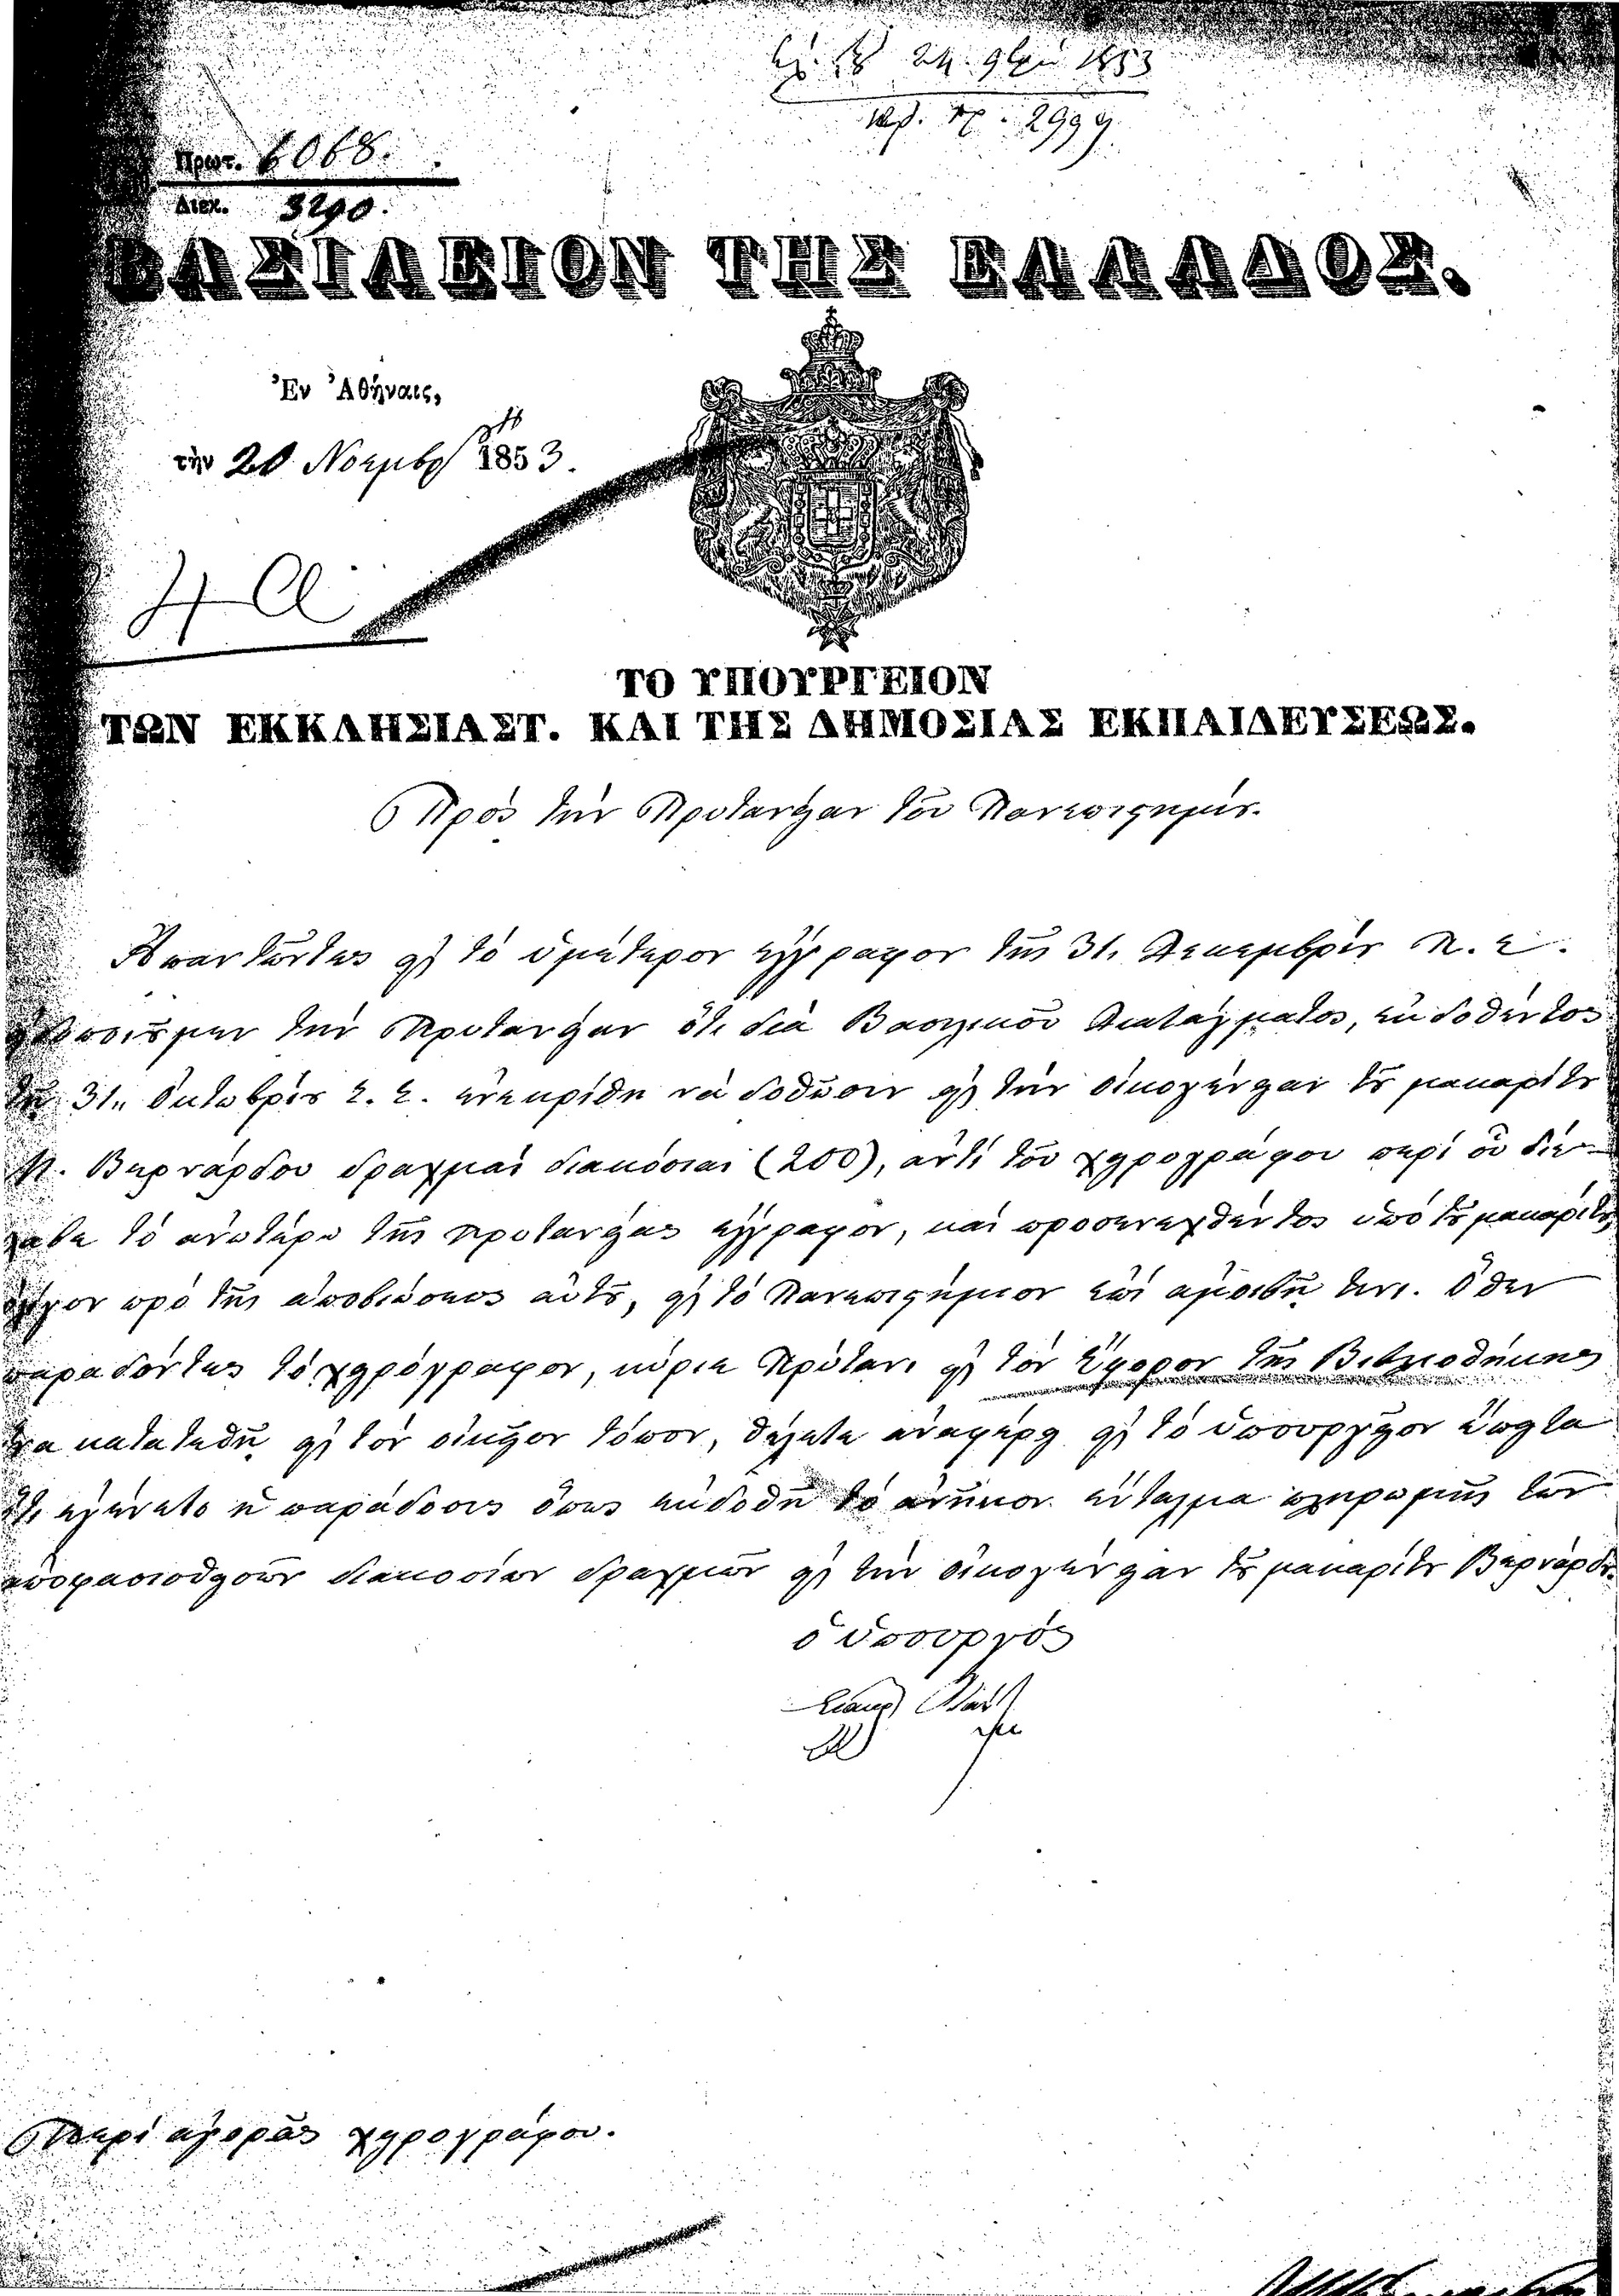 24 9βρίου 1853
2999.
Πρωτ. 6068.
Διεκ. 3290.
ΒΑΣΙΛΕΙΟΝ ΤΗΣ ΕΛΛΑΔΟΣ.
Ἐν Ἀθήναις,
τὴν 20 Νοεμβρ 1853.
ΤΟ ΥΠΟΥΡΓΕΙΟΝ
ΤΩΝ ΕΚΚΛΗΣΙΑΣΤ. ΚΑΙ ΤΗΣ ΔΗΜΟΣΙΑΣ ΕΚΠΑΙΔΕΥΣΕΩΣ.
Πρὸς τὴν Πρυτανείαν τοῦ Πανεπιστημίου.
Ἀπαντῶντες εἰς τὸ ὑμέτερον ἔγγραφον τῆς 31. Δεκεμβρίου π. ἔ.
εἰδοποιοῦμεν τὴν Πρυτανείαν ὅτι διὰ Βασιλικοῦ Διατάγματος, ἐκδοθέντος
τὴν 31. Ὀκτωβρίου ἔ. ἔ. ἐνεκρίθη νὰ δοθῶσιν εἰς τὴν οἰκογένειαν τοῦ μακαρίτου
Βερνάρδου δραχμαὶ διακόσιαι (200), ἀντὶ τοῦ χειρογράφου περὶ οὗ διε-
λαβε τὸ ἀνωτέρω τῆς πρυτανείας ἔγγραφον, καὶ προσενεχθέντος ὑπὸ τοῦ μακαρίτου,
ὀλίγον πρὸ τῆς ἀποβιώσεως αὐτοῦ, εἰς τὸ Πανεπιστήμιον ἐπὶ ἀμοιβῇ τινι. Ὅθεν
παραδόντες τὸ χειρόγραφον, κύριε Πρύτανι εἰς τὸν Ἔφορον τῆς Βιβλιοθήκης
ἵνα κατατεθῇ εἰς τὸν οἰκεῖον τόπον, θέλετε ἀναφέρει εἰς τὸ ὑπουργεῖον ἔπειτα
ὅτι ἐγένετο ἡ παράδοσις ὅπως ἐκδοθῇ τὸ ἀνῆκον ἔνταλμα πληρωμῆς τῶν
ἀποφασισθεισῶν διακοσίων δραχμῶν εἰς τὴν οἰκογένειαν τοῦ μακαρίτου Βερνάρδου.
ὁ ὑπουργὸς
Περὶ ἀγορᾶς χειρογράφου.